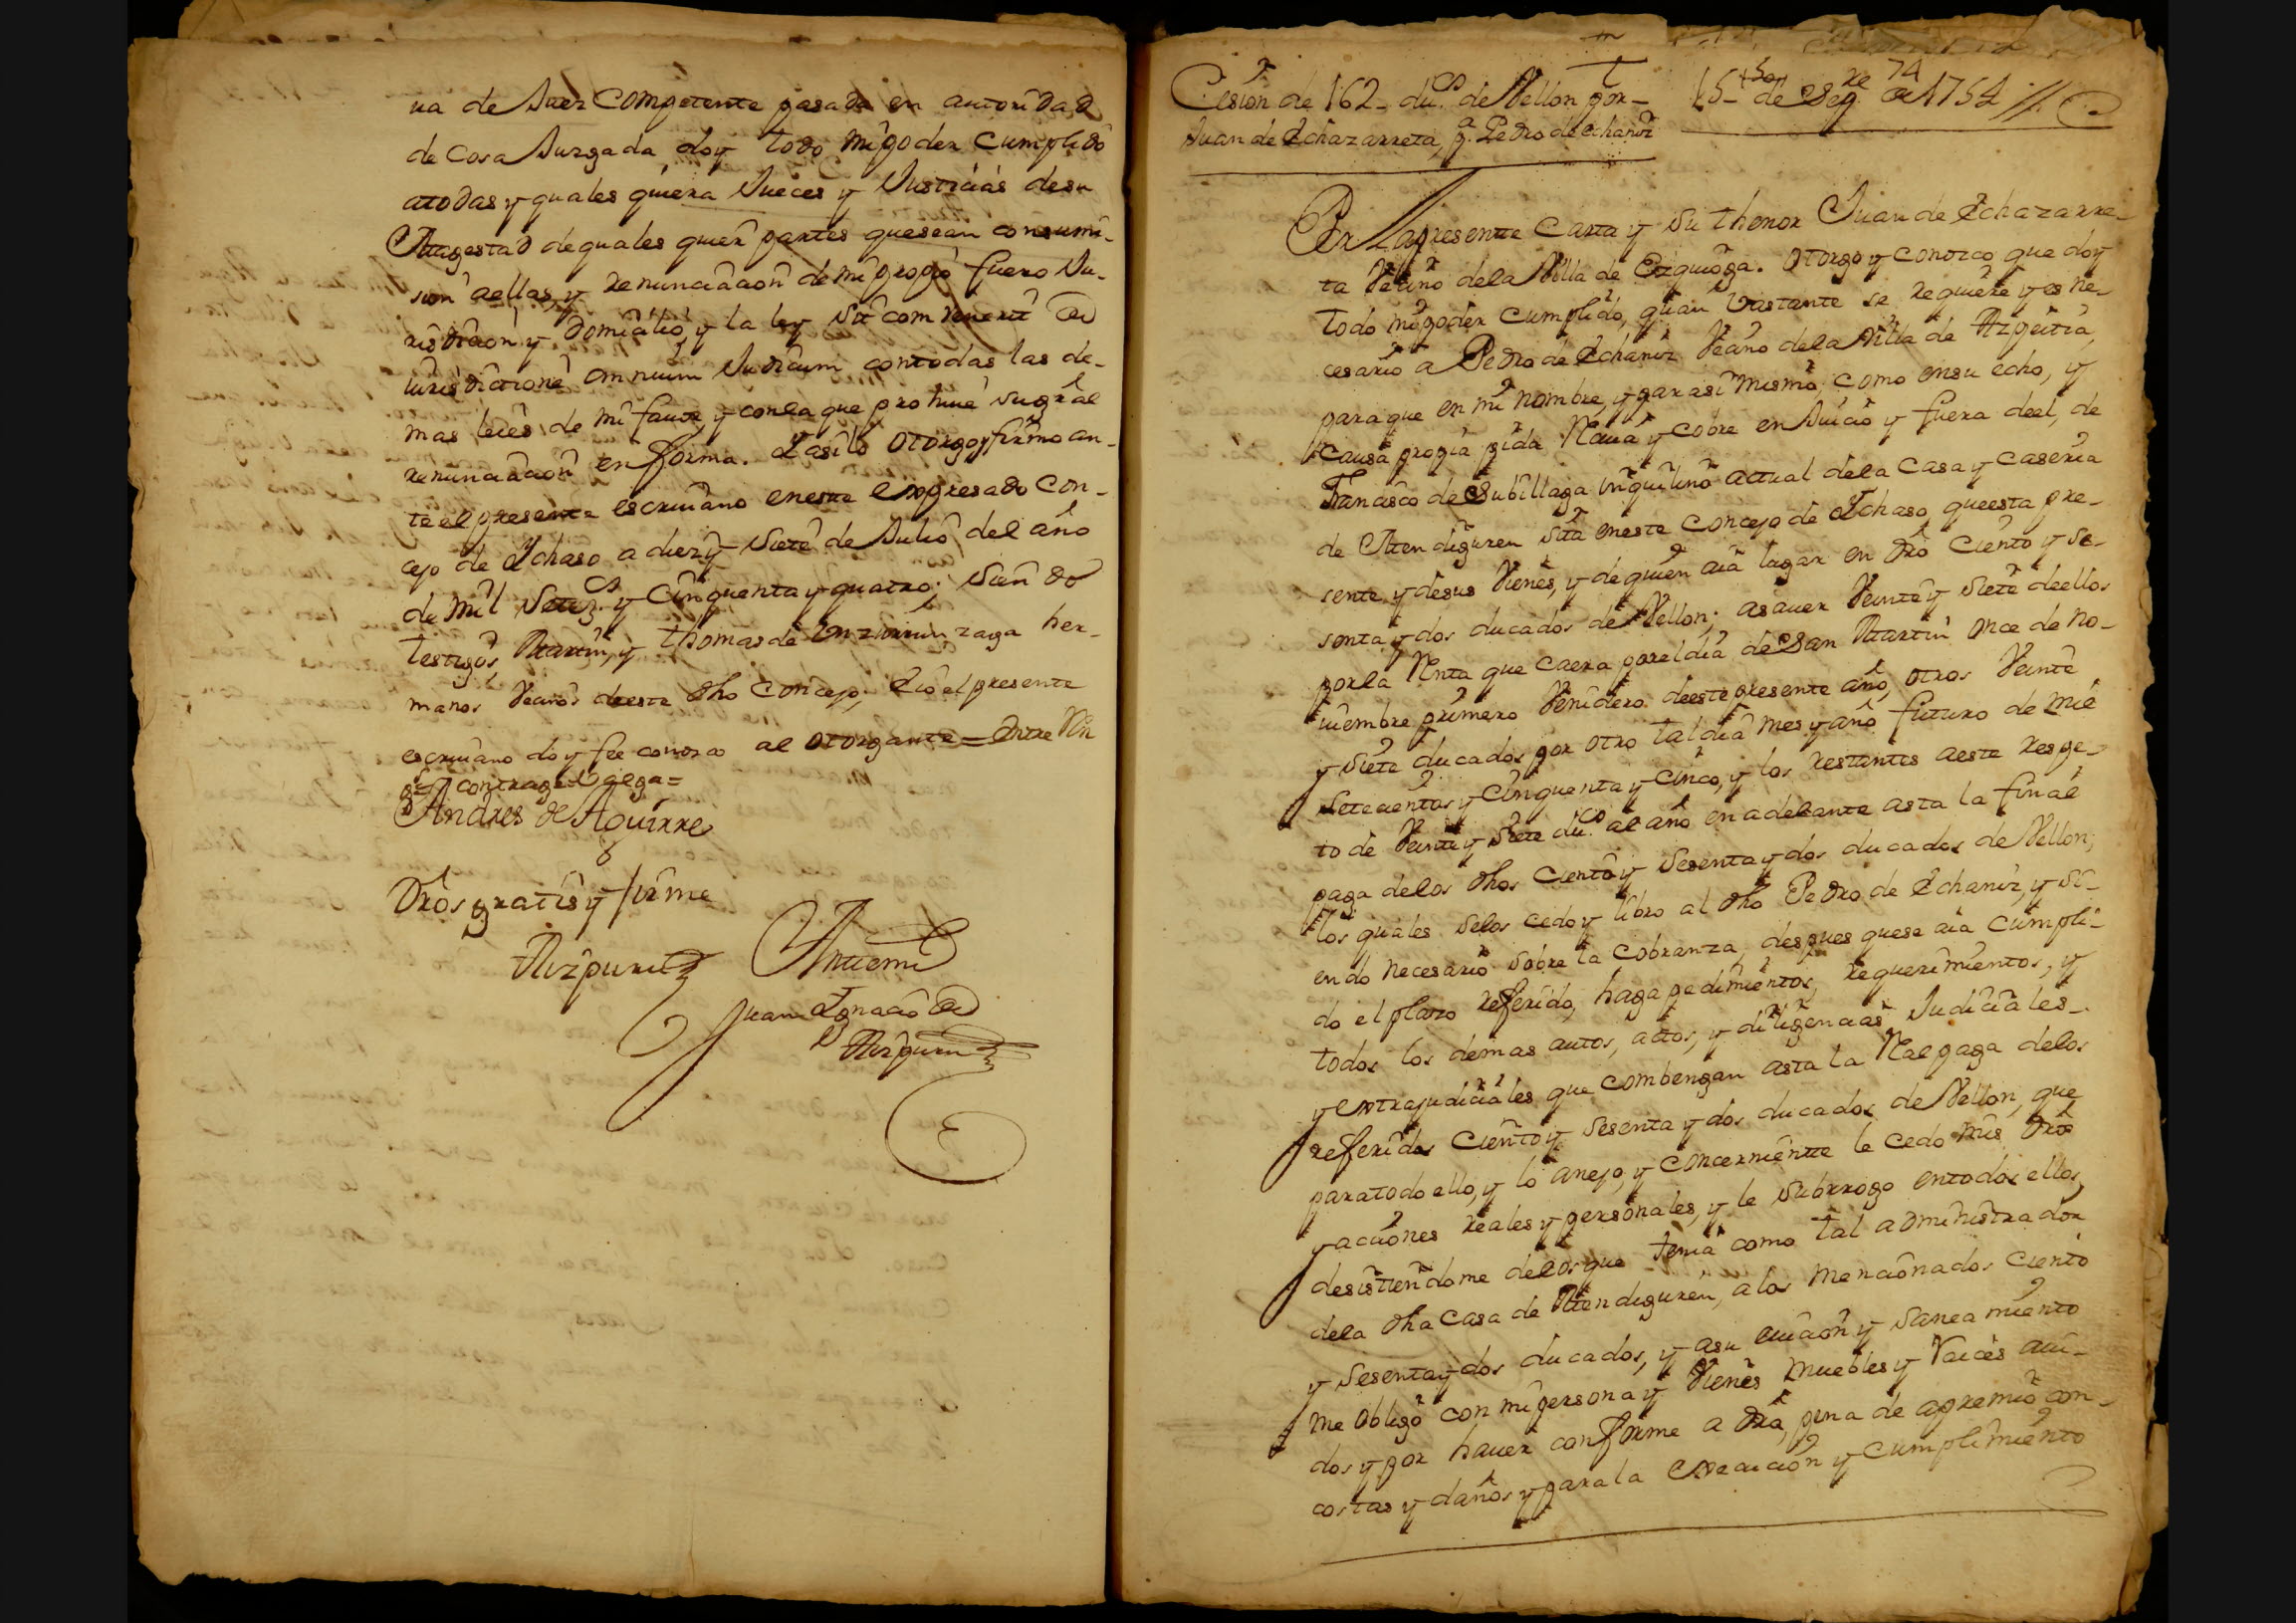 ua de Juez Competente pasada en autoridad
de cosa Juzgada, doy todo mi poder Cumplido
atodas y quales quiera Jueces y Justicias desu
Magestad de quales quier partes quesean con sumi-
sion aellas, y renunciacion de mi propio fuero Ju-
risdicion y Domicilio, y la ley Sit combenerit de
Jurisdictione omnium Judicum contodas las de-
mas leies de mi favor, y con la que prohive su gral
renunciacion en forma. I asi lo otorgo y firmo an-
te el presente escrivano en este expresado Con-
cejo de Ichaso a diez y Siete de Julio del año
de mil Setezs. y Cinquenta y quatro; Siendo
testigos, Martin, y Thomas de Inzurrunzaga her-
manos Vecinos deeste dho Concejo; Eio el presente
escrivano doy fee conozco al otorgante = Entre Rn
contrage = Valga =
Andres de Aguirre
Dros gratis y firme
Aizpuru
Antemi
Juan Ignacio de
Aizpuru
74
Cesion de 162 - dus. de Vellon por -
15 - de Sepre de 1754 //
Juan de Echazarreta, pa. Pedro de echaniz
Por la presente Carta y su thenor Juan de Echazarre-
ta Vecino dela Villa de Ezquioga. Otorgo y conozco que doy
todo mi poder cumplido, quan vastante se requiere y es ne-
cesario a Pedro de Echaniz Vecino dela Villa de Azpeitia,
para que en mi nombre, y para si mismo, como en su echo, y
Causa propia pida Reciva y cobre en Juicio y fuera deel, de
Francisco de Subillaga inquilino actual dela Casa y Caseria
de Mendiguren sita en este Concejo de Ichaso queesta pre-
sente y desus Vienes, y de quien aia lugar en dro Ciento y Se-
senta y dos ducados de Vellon; asaver Veinte y Siete deellos
por la Renta que caera por el dia de San Martin once de No-
viembre primero Venidero deeste presente año, otros Veinte
y Siete ducados por otro tal dia mes y año futuro de mil
Setecientos y Cinquenta y Cinco, y los restantes aeste respe-
to de Veinte y Siete dus. al año en adelante asta la final
paga delos dhos Ciento y Sesenta y dos ducados de Vellon;
los quales selos cedo y libro al dho Pedro de Echaniz, y si-
endo necesario sobre la cobranza, despues quese aia Cumpli-
do el plazo referido, haga pedimientos, requerimientos, y
todos los demas autos, actos, y diligencias Judiciales -
y extrajudiciales que combengan asta la Real paga delos
referidos Ciento y Sesenta y dos ducados de Vellon, que
para todo ello, y lo anejo, y concerniente le cedo mis dros
y acciones reales y personales, y le Subrrogo entodos ellos,
desistiendome delos que tenia como tal administrador
dela dha Casa de Mendiguren, a los mencionados Ciento
y Sesenta y dos ducados, y asu evicion y Saneamiento
me obligo con mi persona y Vienes muebles y Raices avi-
dos y por haver conforme a dro, pena de apremio con-
costas y daños y para la execucion y cumplimiento